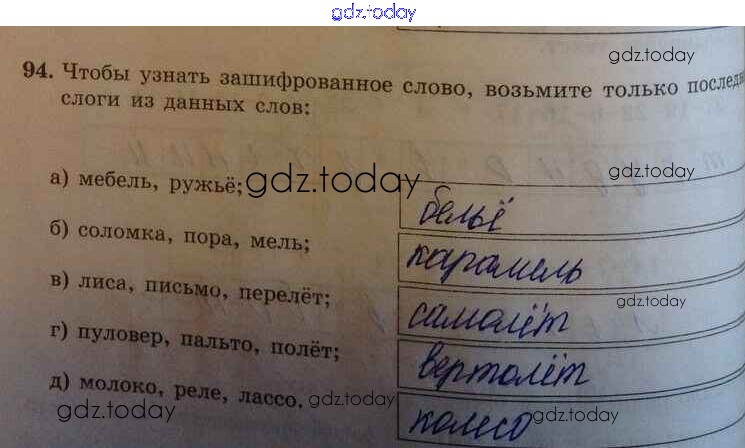 gdz.today
gdz.today
94. Чтобы узнать зашифрованное слово, возьмите только последн
слоги из данных слов:
gdz.today
а) мебель, ружьё; gdz.today
бельё
б) соломка, пора, мель;
карамель
в) лиса, письмо, перелёт;
gdz.today
самолёт
г) пуловер, пальто, полёт;
вертолёт
д) молоко, реле, лассо.
gdz.today gdz.today gdz.today
колесо